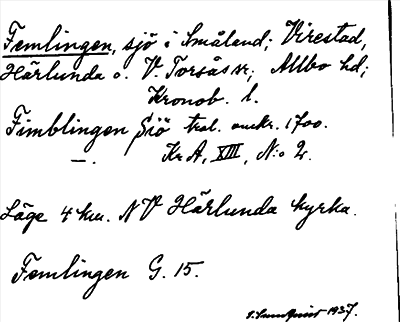 Femlingen, sjö i Småland; Virestad,
Härlunda o. V. Torsås sn; Allbo hd;
Kronob. l.
Fimblingen Siö trol. omkr. 1700.
—. Kr A, XIII, N:o 2.
Läge 4 km. NV Härlunda kyrka.
Femlingen G. 15.
1937.